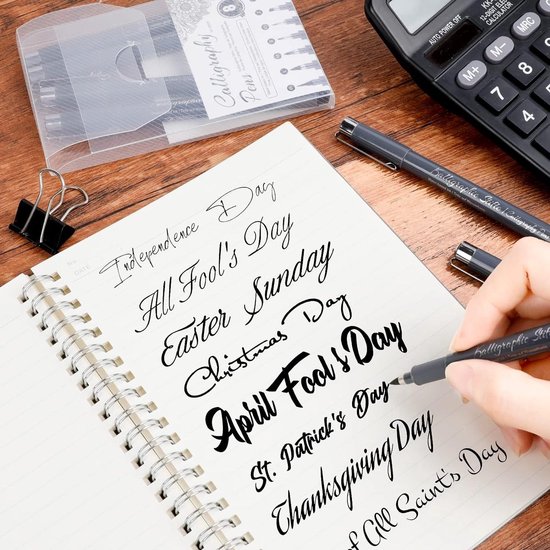 Calligraphy
Pens
8
AUTO POWER OFF
KK-
12-DIGIT ELEC
CALCULATOR
M+
M-
MRC
7
8
9
4
5
1
Calligraphic
DATE
Independence Day
All Fool's Day
Easter Sunday
Christmas Day
April Fool's Day
St. Patrick's Day
Thanksgiving Day
of All Saint's Day
Calligraphic